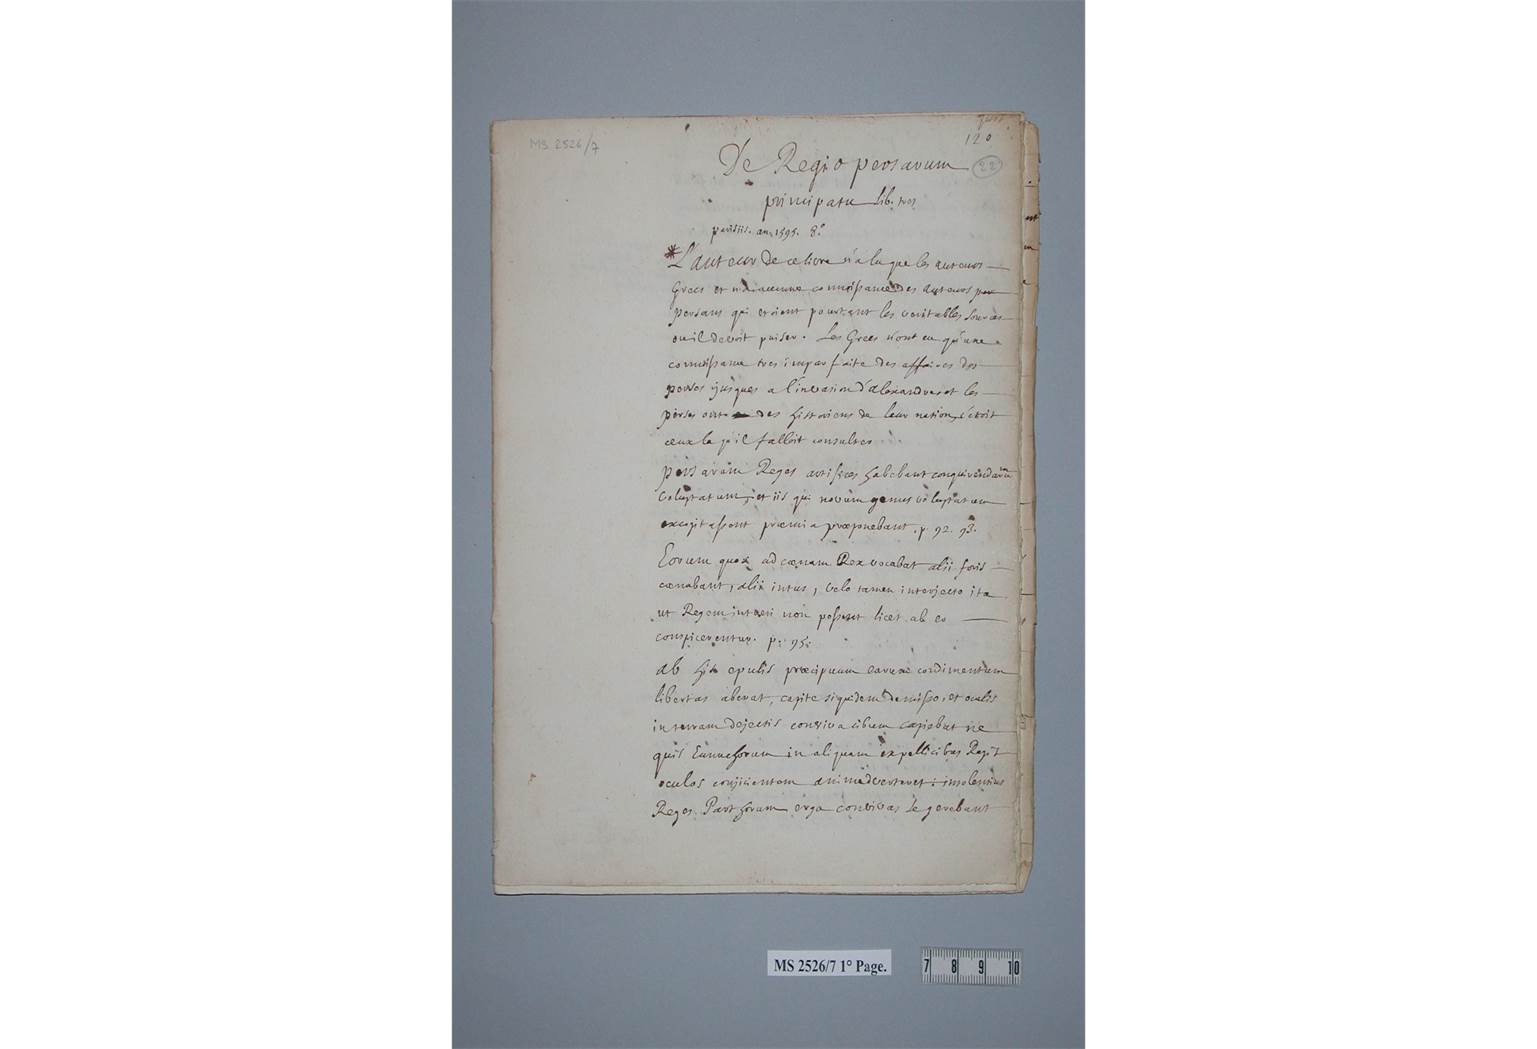 MS 2526/7
120
De Regio persarum
22
principatu lib. tres
parisiis. an. 1595. 8.°
* L'auteur de ce livre n'a lu que les auteurs
Grecs et n'a aucune connoissance des auteurs
persans qui etoient pourtant les veritables sources
ou il devoit puiser. Les Grecs n'ont eu qu'une
connoissance tres imparfaite des affaires des
perses jusques a l'invasion d'alexandre et les
perses ont des historiens de leur nation, c'etoit
ceux la qu'il falloit consulter
persarum Reges artifices habebant conquirendarum
voluptatum, et iis qui novum genus voluptatum
excogitassent praemia praeponebant. p. 92. 93.
Eorum quos ad coenam Rex vocabat alii foris
coenabant, alii intus, velo tamen interjecto ita
ut Regem intueri non possent licet ab eo
conspicerentur. p. 95.
ab his epulis praecipuum earum condimentum
libertas aberat, capite siquidem demisso, et oculis
in terram dejectis convivae cibum capiebant ne
quis Eunuchorum in aliquam ex pellicibus Regis
oculos conjicientem animadverteret: insolentius
Reges Parthorum erga convivas se gerebant
MS 2526/7 1° Page.
7 8 9 10